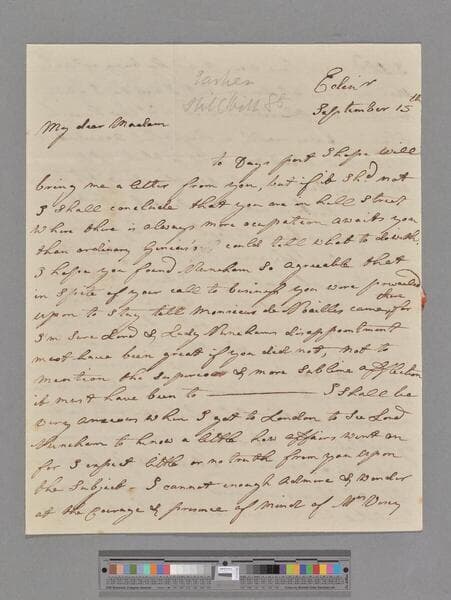 Edinr
September 15th
My dear Madam
to Days post I hope will
bring me a letter from you, but if it shd not
I shall conclude that you are in hill Street
Where there is always more occupation awaits you
than ordinary could tell what to do with.
I hope you found Nuneham so agreeable that
in Spite of your call to business you were prevailed
upon to Stay till Monsieur de Noailles came there, for
I'm Sure Lord & Lady Nunehams disappointment
must have been great if you did not, not to
mention the & more Sublime affliction
it must have been to ——— I shall be
very anxious when I get to London to See Lord
Nuneham to know a little how affairs went on
for I expect little or no truth from you upon
the Subject. I cannot enough admire & wonder
at the Courage & presence of Mind of Mrs